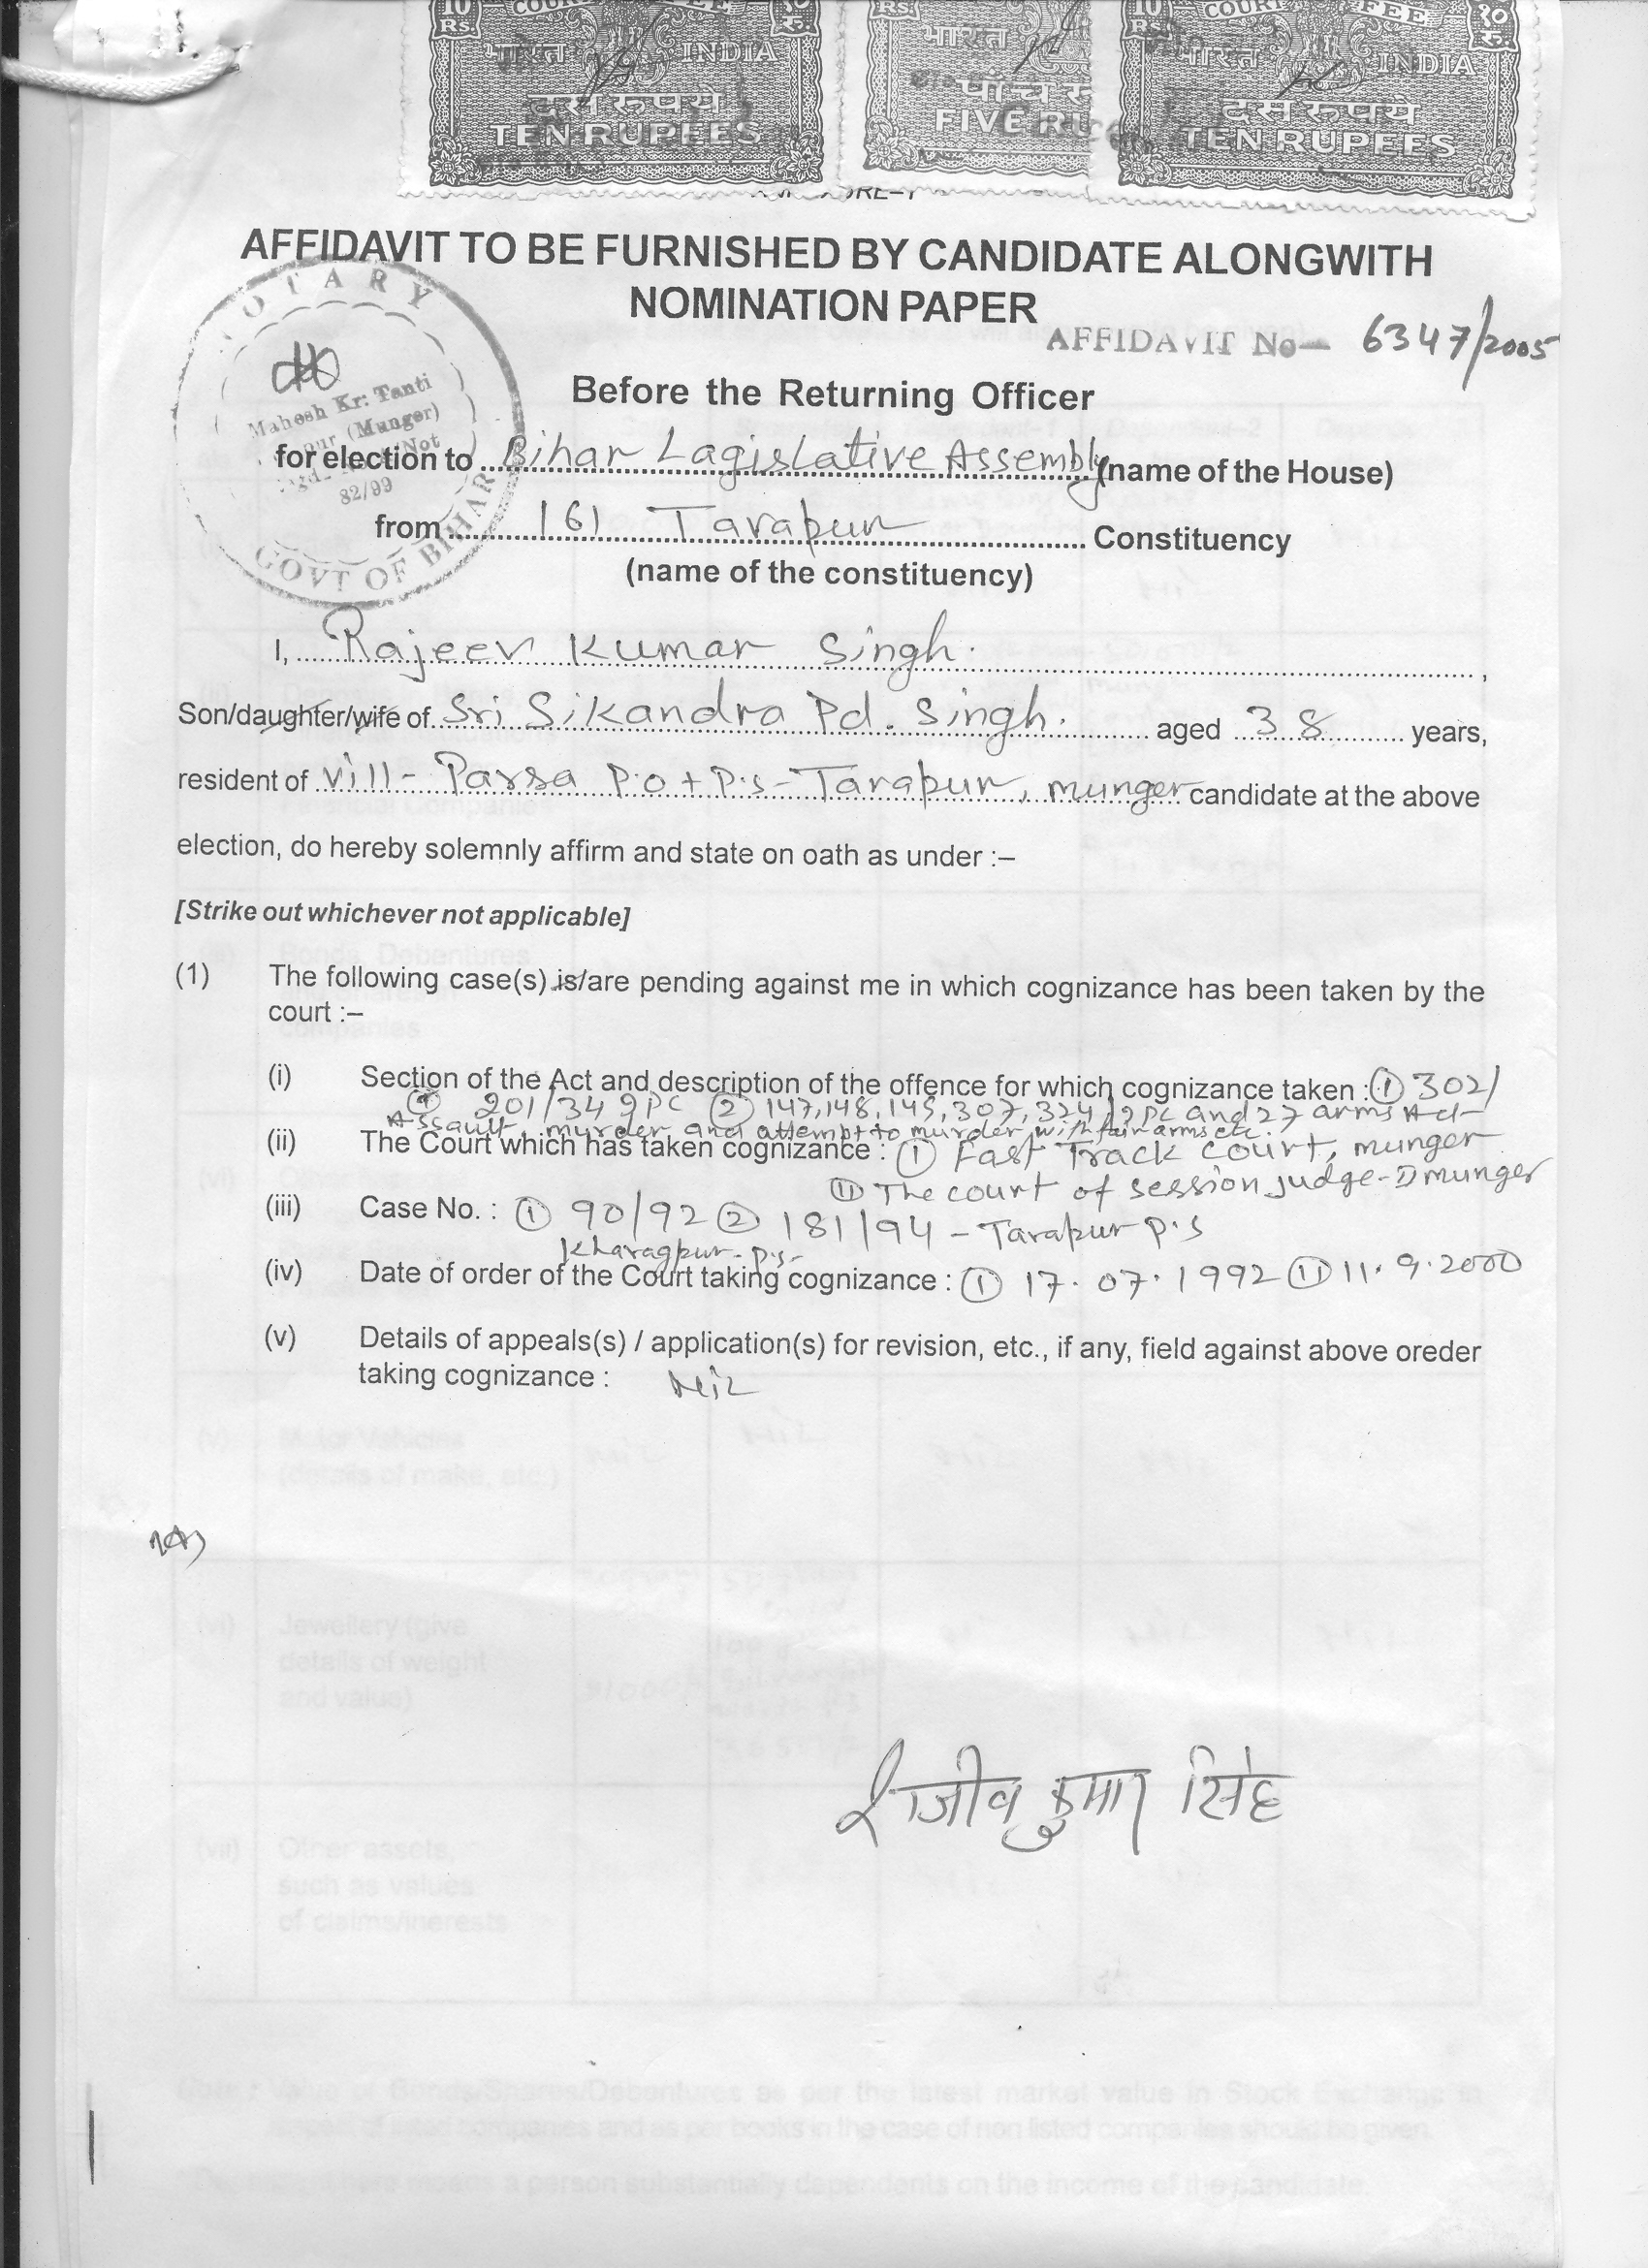 10 COURT FEE
Rs.
भारत INDIA
दस रुपये
TEN RUPEES
Rs.
भारत
पाँच रु
FIVE RU
10 COURT FEE १०
Rs. रु.
भारत INDIA
दस रुपये
TEN RUPEES
AFFIDAVIT TO BE FURNISHED BY CANDIDATE ALONGWITH
NOMINATION PAPER
AFFIDAVIT No– 6347/2005
NOTARY
Mahesh Kr: Tanti
(Munger)
Not
82/99
GOVT OF BIHAR
Before the Returning Officer
for election to Bihar Lagislative Assembly (name of the House)
from 161 Tarapur Constituency
(name of the constituency)
I, Rajeev Kumar Singh.,
Son/daughter/wife of Sri Sikandra Pd. Singh. aged 38 years,
resident of Vill- Parsa P.o + P.s - Tarapur, munger candidate at the above
election, do hereby solemnly affirm and state on oath as under :–
[Strike out whichever not applicable]
(1) The following case(s) is/are pending against me in which cognizance has been taken by the
court :–
(i) Section of the Act and description of the offence for which cognizance taken : ① 302/
201/34 IPC ② 147, 148, 149, 307, 324 IPC and 27 arms Act
Assault, murder and attempt to murder with fair arms etc.
(ii) The Court which has taken cognizance : ① Fast Track Court, munger
⑪ The court of session judge-D munger
(iii) Case No. : ① 90/92 ② 181/94 - Tarapur P.S
Kharagpur - P.S-
(iv) Date of order of the Court taking cognizance : ① 17.07.1992 ⑪ 11.9.2000
(v) Details of appeals(s) / application(s) for revision, etc., if any, field against above oreder
taking cognizance : Nil
राजीव कुमार सिंह